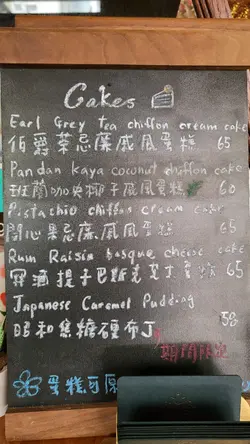 Cakes
Earl Grey tea chiffon cream cake
伯爵茶忌廉戚風蛋糕 65
Pandan kaya coconut chiffon cake
班蘭咖央椰子戚風蛋糕 60
Pistachio chiffon cream cake
開心果忌廉戚風蛋糕 65
Rum Raisin basque cheese cake
冧酒提子巴斯克芝士蛋糕 65
Japanese Caramel Pudding
昭和焦糖硬布丁 58
期間限定
蛋糕可